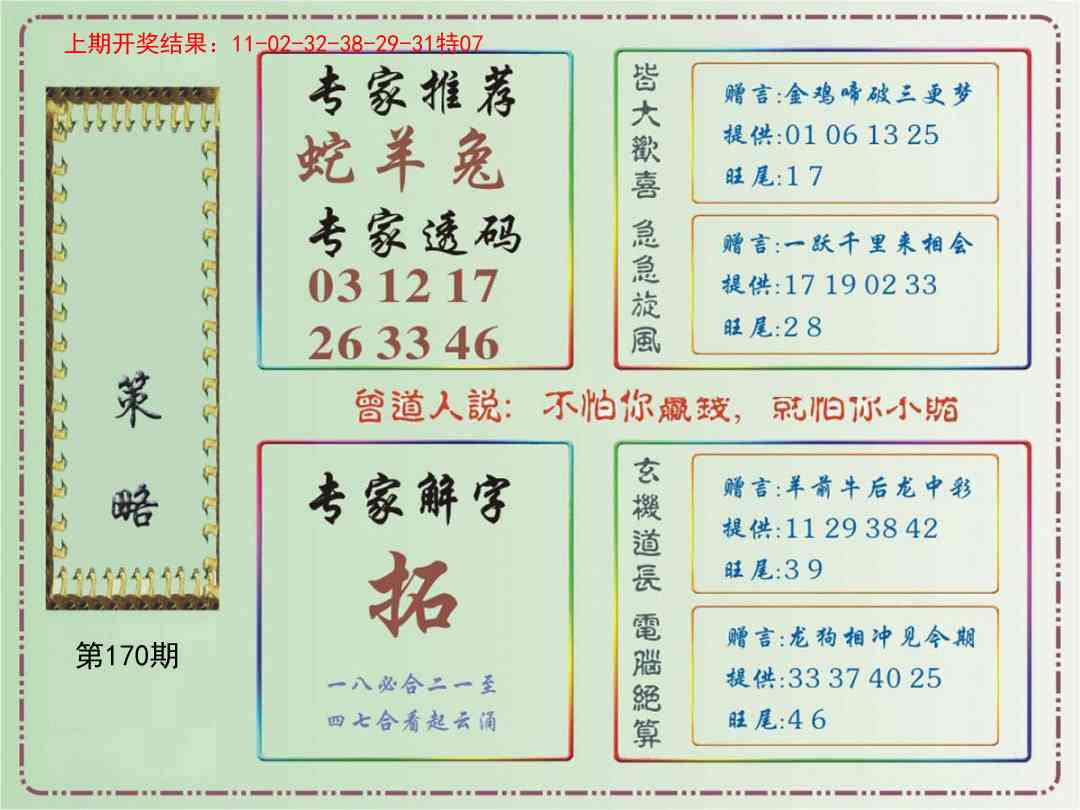 上期开奖结果：11-02-32-38-29-31特07
策略
第170期
专家推荐
蛇羊兔
专家透码
03 12 17
26 33 46
皆大歡喜
赠言:金鸡啼破三更梦
提供:01 06 13 25
旺尾:1 7
急急旋風
赠言:一跃千里来相会
提供:17 19 02 33
旺尾:2 8
曾道人説：不怕你贏錢，就怕你不賭
专家解字
拓
一八必合二一至
四七合看起云涌
玄機道長
赠言:羊前牛后龙中彩
提供:11 29 38 42
旺尾:3 9
電腦絕算
赠言:龙狗相冲见今期
提供:33 37 40 25
旺尾:4 6